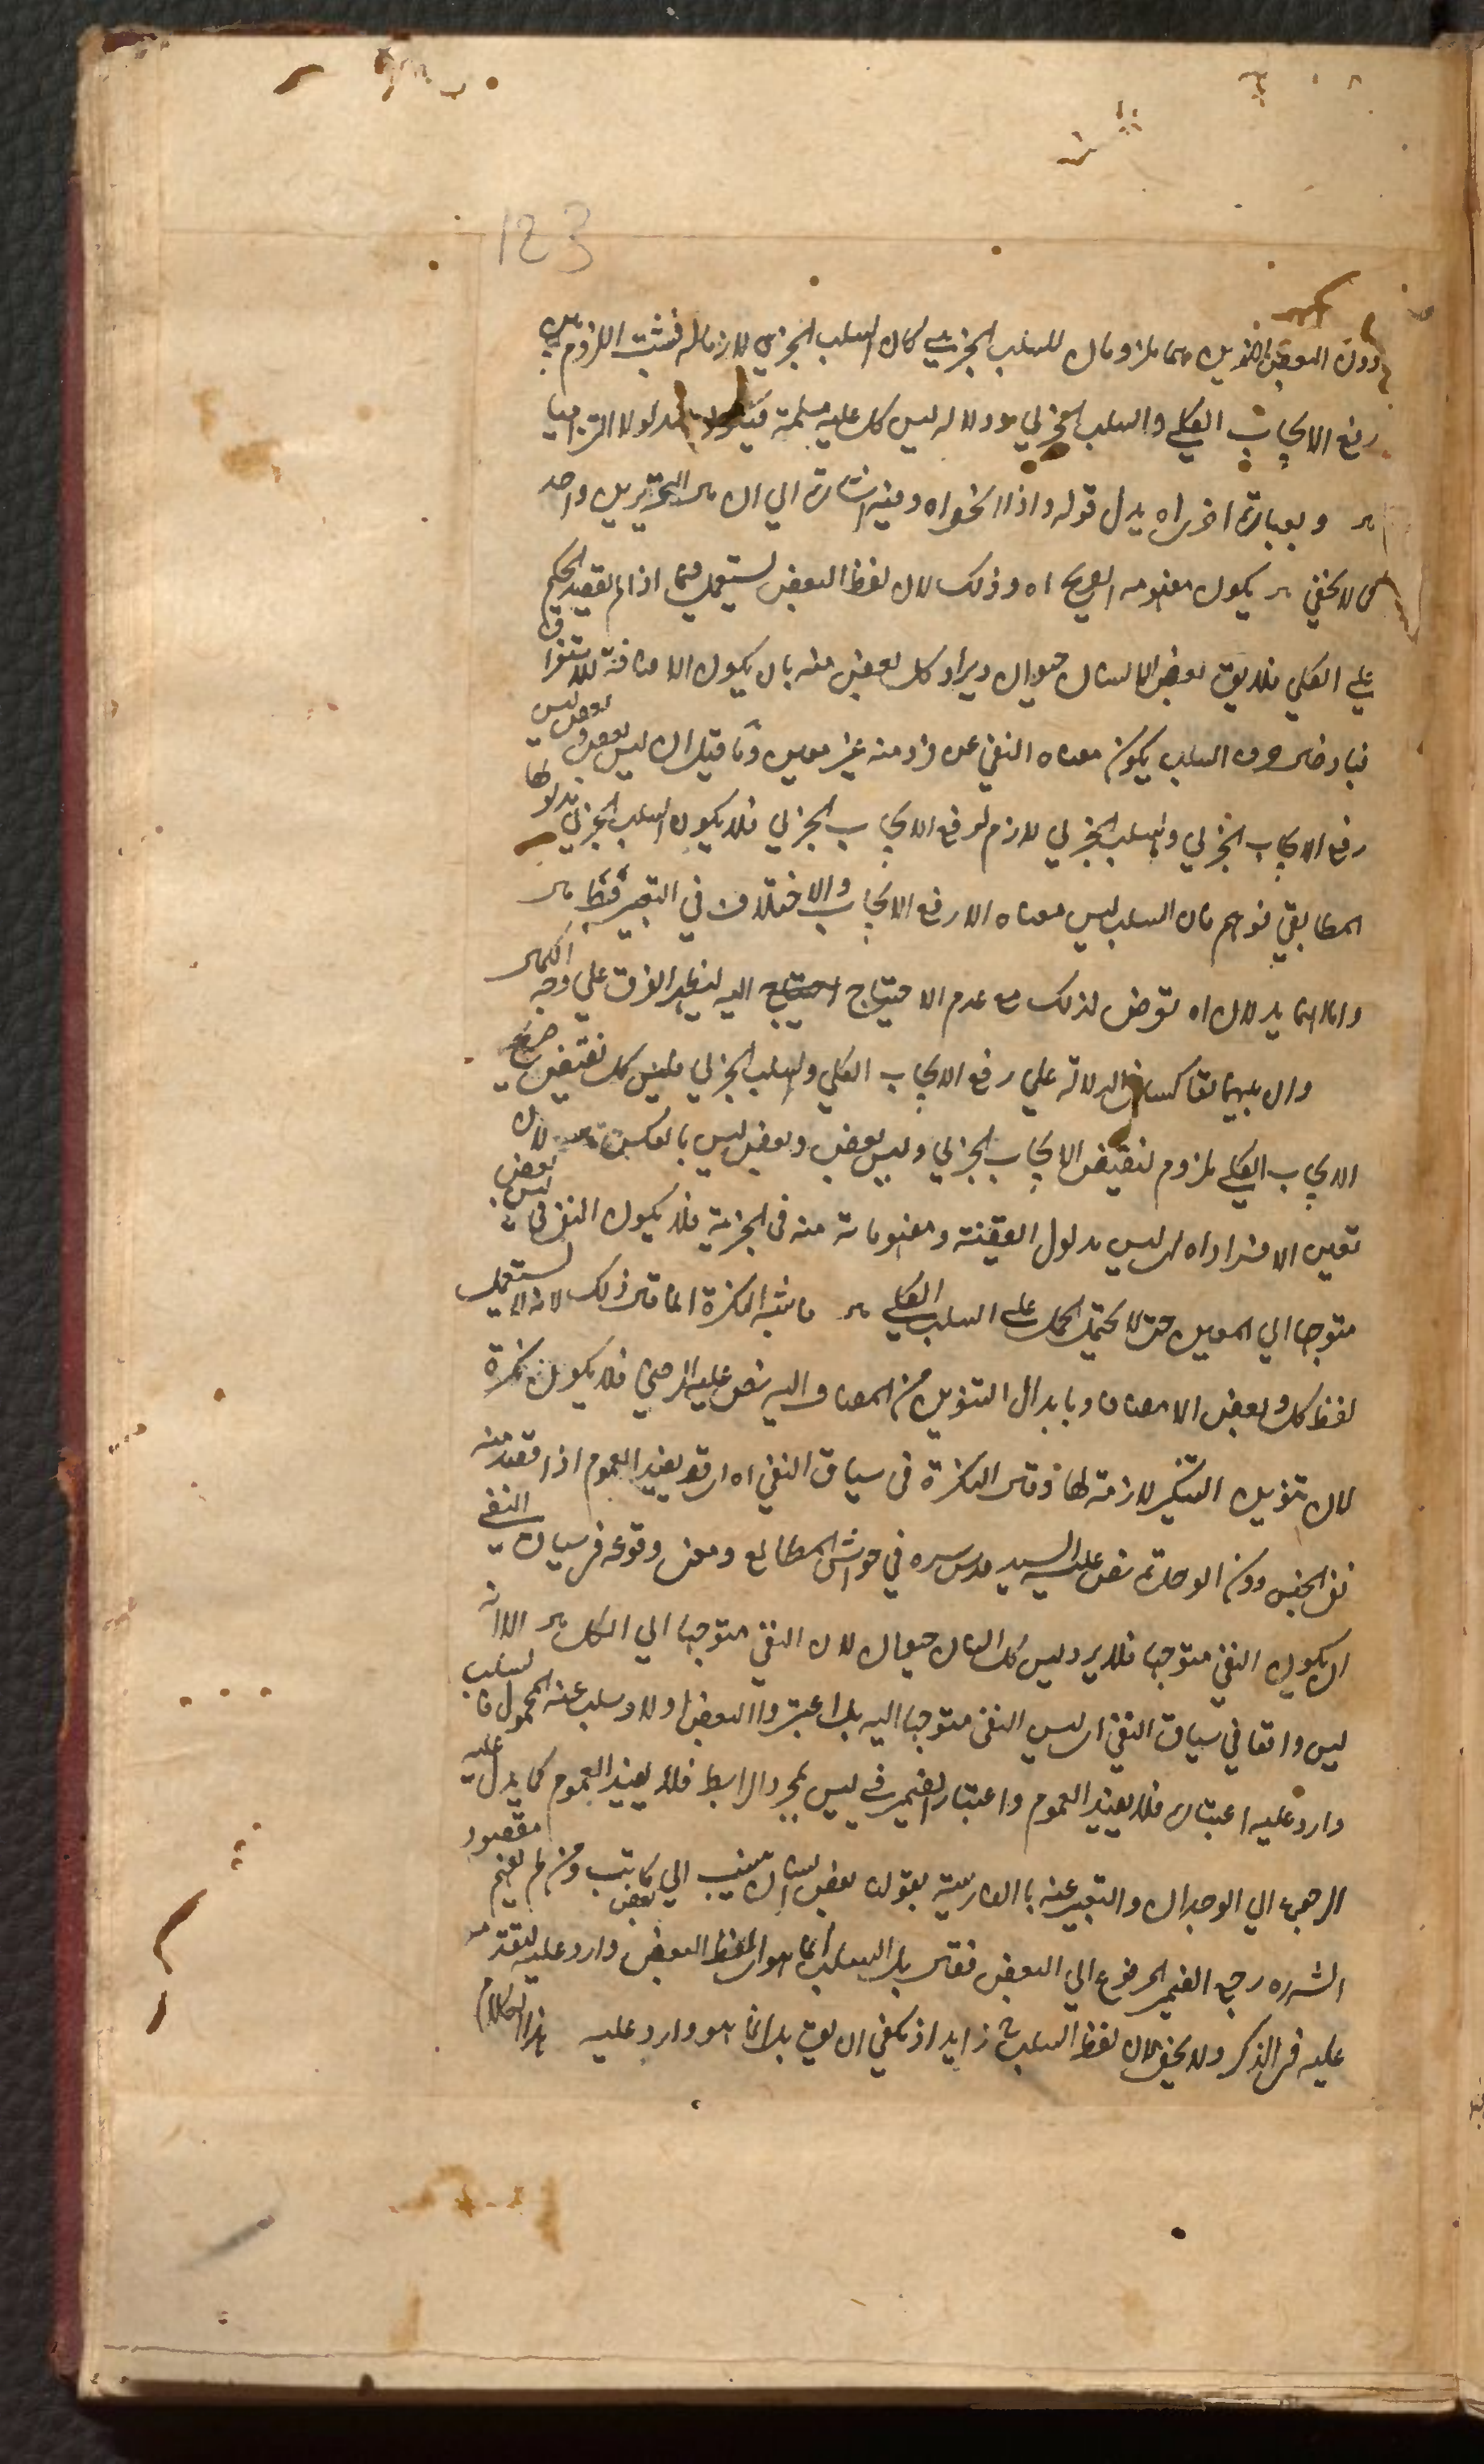 123
دون البعض الآخرين هما ملزومان للسلب الجزئي كان السلب الجزئي لازما له فثبت اللزوم بين
رفع الايجاب الكلي والسلب الجزئي ودلالة ليس كل عليه مسلمة فيكون مدلولا التزاميا
وبعبارة اخرى اه بدل قوله واذا انحفواه وفيه اشارة الي ان مآل التحريرين واحد
كما لا يخفي يكون مفهومه الصريح اه وذلك لان لفظ البعض يستعمل فيما اذا لم يقصد الحكم
علي الكلي فلا يق بعض الانسان حيوان ويراد كل بعض منه بان يكون الاضافة للاستغراق
فبادخال حرف السلب يكون معناه النفي عن فرد منه غير معين وما قيل ان ليس بعض وبعض ليس
رفع الايجاب الجزئي والسلب الجزئي لازم لرفع الايجاب الجزئي فلا يكون السلب الجزئي مدلولها
المطابقي فوهم فان السلب ليس معناه الا رفع الايجاب والاختلاف في التعبير فقط
واما انهما يدلان اه تعرض لذلك مع عدم الاحتياج اليه ليظهر الفرق علي وجه الكمال
وان بينهما تعاكسا في الدلالة علي رفع الايجاب الكلي والسلب الجزئي فليس كل نقيض صريح
الايجاب الكلي ملزوم لنقيض الايجاب الجزئي وليس بعض وبعض ليس بالعكس لان
تعين الافراد اه ليس مدلول القضية ومفهوماته منه في الجزئية فلا يكون النفي في ليس بعض
متوجها الي المعين حتى لا يحتمل الحمل على السلب الكلي فاشبه النكرة انما قال ذلك لانه لا يستعمل
لفظ كل وبعض الا مضافا وبابدال التنوين من المضاف اليه نص عليه الرضي فلا يكون نكرة
لان تنوين التنكير لازمة لها وقال النكرة في سياق النفي اه اي قد يفيد العموم اذا قصد منه
نفي الجنس دون الوحدة نص عليه السيد قدس سره في حواشي المطالع ومعنى وقوعه في سياق النفي
ان يكون النفي متوجها فلا يرد ليس كل انسان حيوان لان النفي متوجها الي الكل الا انه
ليس واقعا في سياق النفي اي ليس النفي متوجها اليه بل اعتبروا البعض اولا وسلب عنه المحمول فالسلب
وارد عليه اعتبار فلا يفيد العموم واعتبار الضمير في ليس لمجرد الرابط فلا يفيد العموم كما يدل عليه
الرجوع الي الوجدان والتعبير عنه بالفارسية بقولنا بعض انسان نيست كاتب ومن لم يفهم مقصود
الشرح رجع الضمير المرفوع الي البعض فقال بل السلب انما هو اي لفظ البعض وارد عليه لتقدمه
عليه في الذكر ولا يخفى ان لفظ السلب ح زايد اذ يكفي ان يق بل انما هو وارد عليه هذا الكلام